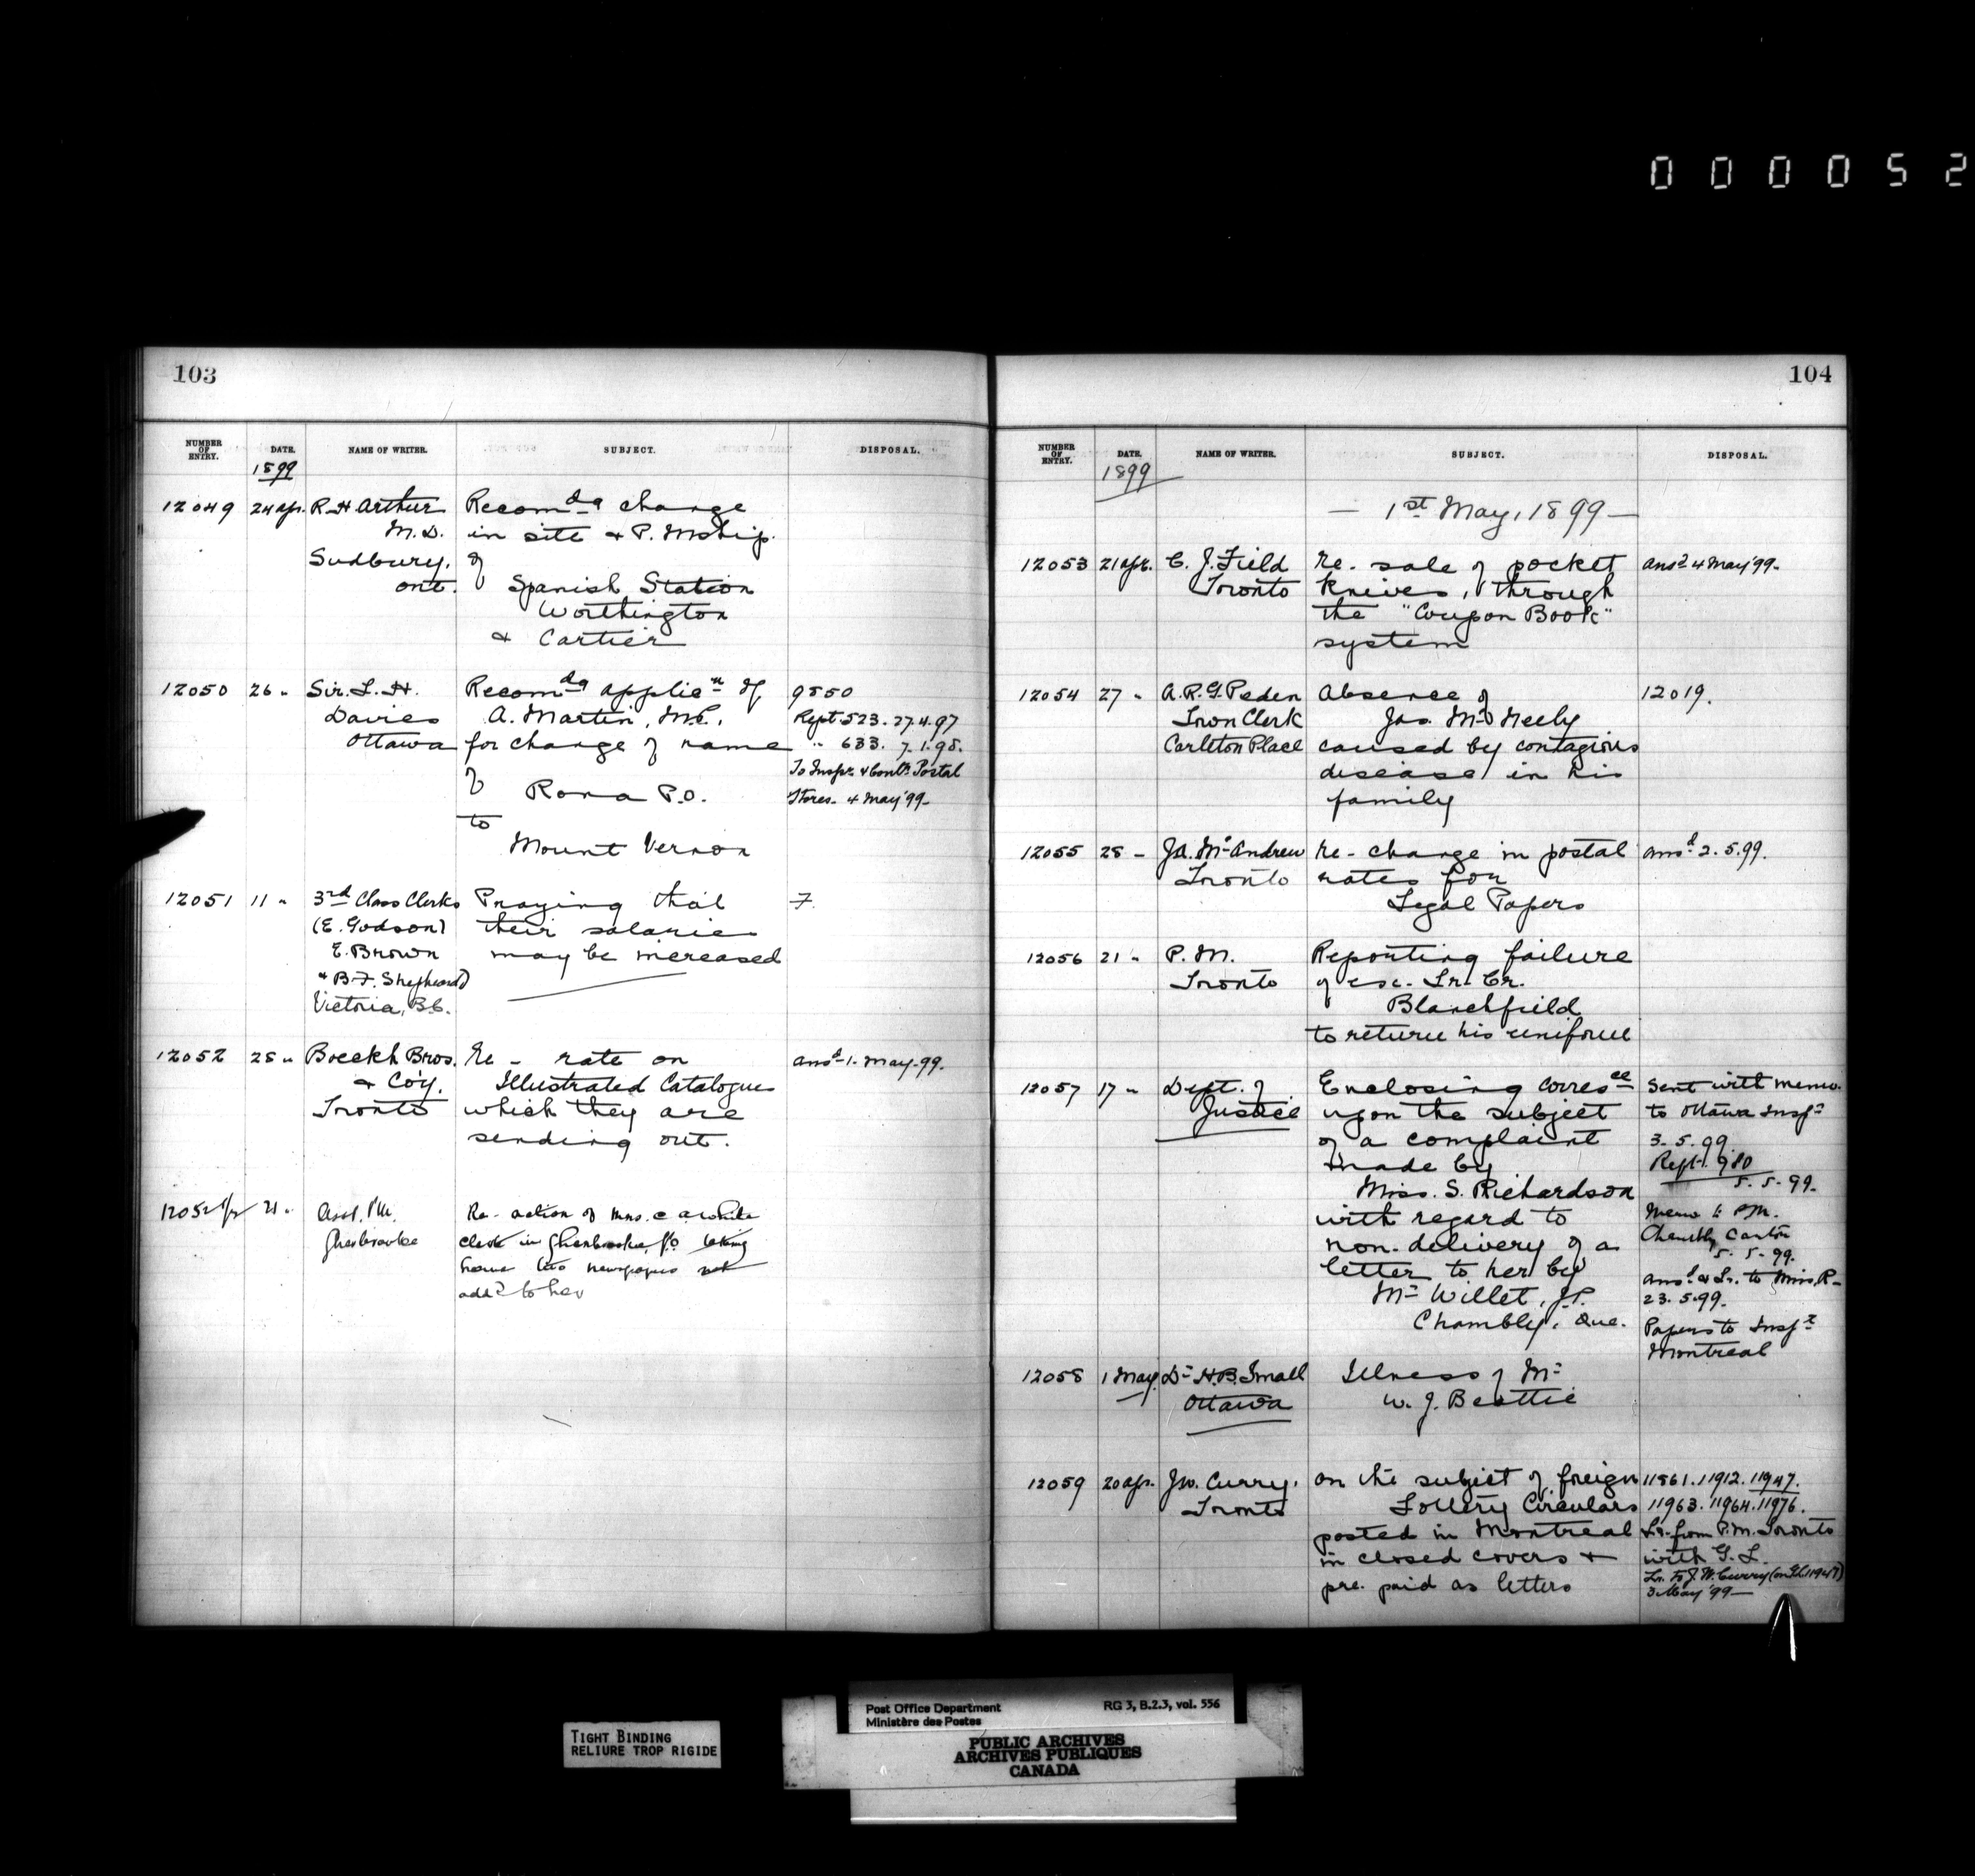 000052
103
NUMBER OF ENTRY. DATE. NAME OF WRITER. SUBJECT. DISPOSAL.
1899
12049 24 ap. R. H. Arthur Recomdg change
M.D. in site & P. Mship.
Sudbury, of
Ont. Spanish Station
Worthington
& Cartier
12050 26 " Sir. L. H. Recomdg applicn of 9850
Davies A. Martin, M.P., Rept 523. 27.4.97
Ottawa for change of name " 633. 7.1.98.
of To Inspr. & Contlr. Postal
Rona P.O. Stores. 4 May '99-
to
Mount Vernon
12051 11 " 3rd Class Clerks Praying that 7.
(E. Godson) their salaries
E. Brown may be increased
& B.F. Shepheard)
Victoria, B.C.
12052 28 " Boeckh Bros. Re - rate on ansd 1. May. 99.
& Co'y. Illustrated Catalogues
Toronto which they are
sending out.
12052½ 21 " Asst. P.M. Re- action of Mrs. C A White
Sherbrooke clerk in Sherbrooke P.O. taking
home two newspapers not
addd to her
104
NUMBER OF ENTRY. DATE. NAME OF WRITER. SUBJECT. DISPOSAL.
1899
— 1st May, 1899 —
12053 21 apr. C. J. Field Re. sale of pocket ansd 4 May '99-
Toronto knives, through
the "Coupon Book"
system
12054 27 " A. R. G. Peden Absence of 12019.
Town Clerk Jas. McNeely
Carleton Place caused by contagious
disease in his
family
12055 28 - Ja. McAndrew Re- change in postal ansd 2.5.99.
Toronto rates for
Legal Papers
12056 21 " P. M. Reporting failure
Toronto of esc. Lr. Cr.
Blanchfield
to return his uniform
12057 17 " Dept. of Enclosing corresce sent with memo.
Justice upon the subject to Ottawa Inspr
of a complaint 3.5.99
made by Rept. 980
Miss. S. Richardson 5.5.99.
with regard to Memo to P.M.
non-delivery of a Chambly Canton
5.5.99.
letter to her by ansd & Lr. to Miss R-
Mr Willet, J.P. 23.5.99.
Chambly, Que. Papers to Inspr
Montreal
12058 1 May Dr H.B. Small Illness of Mr
Ottawa W. J. Beattie
12059 20 apr. J.W. Curry. on the subject of foreign 11861. 11912. 11947.
Toronto Lottery Circulars 11963. 11964. 11976.
posted in Montreal Lr. from P.M. Toronto
in closed covers & with G. L.
pre. paid as letters Lr. to J. W. Curry (on GL 11947)
3 May '99—
TIGHT BINDING
RELIURE TROP RIGIDE
Post Office Department RG 3, B.2.3, vol. 556
Ministère des Postes
PUBLIC ARCHIVES
ARCHIVES PUBLIQUES
CANADA